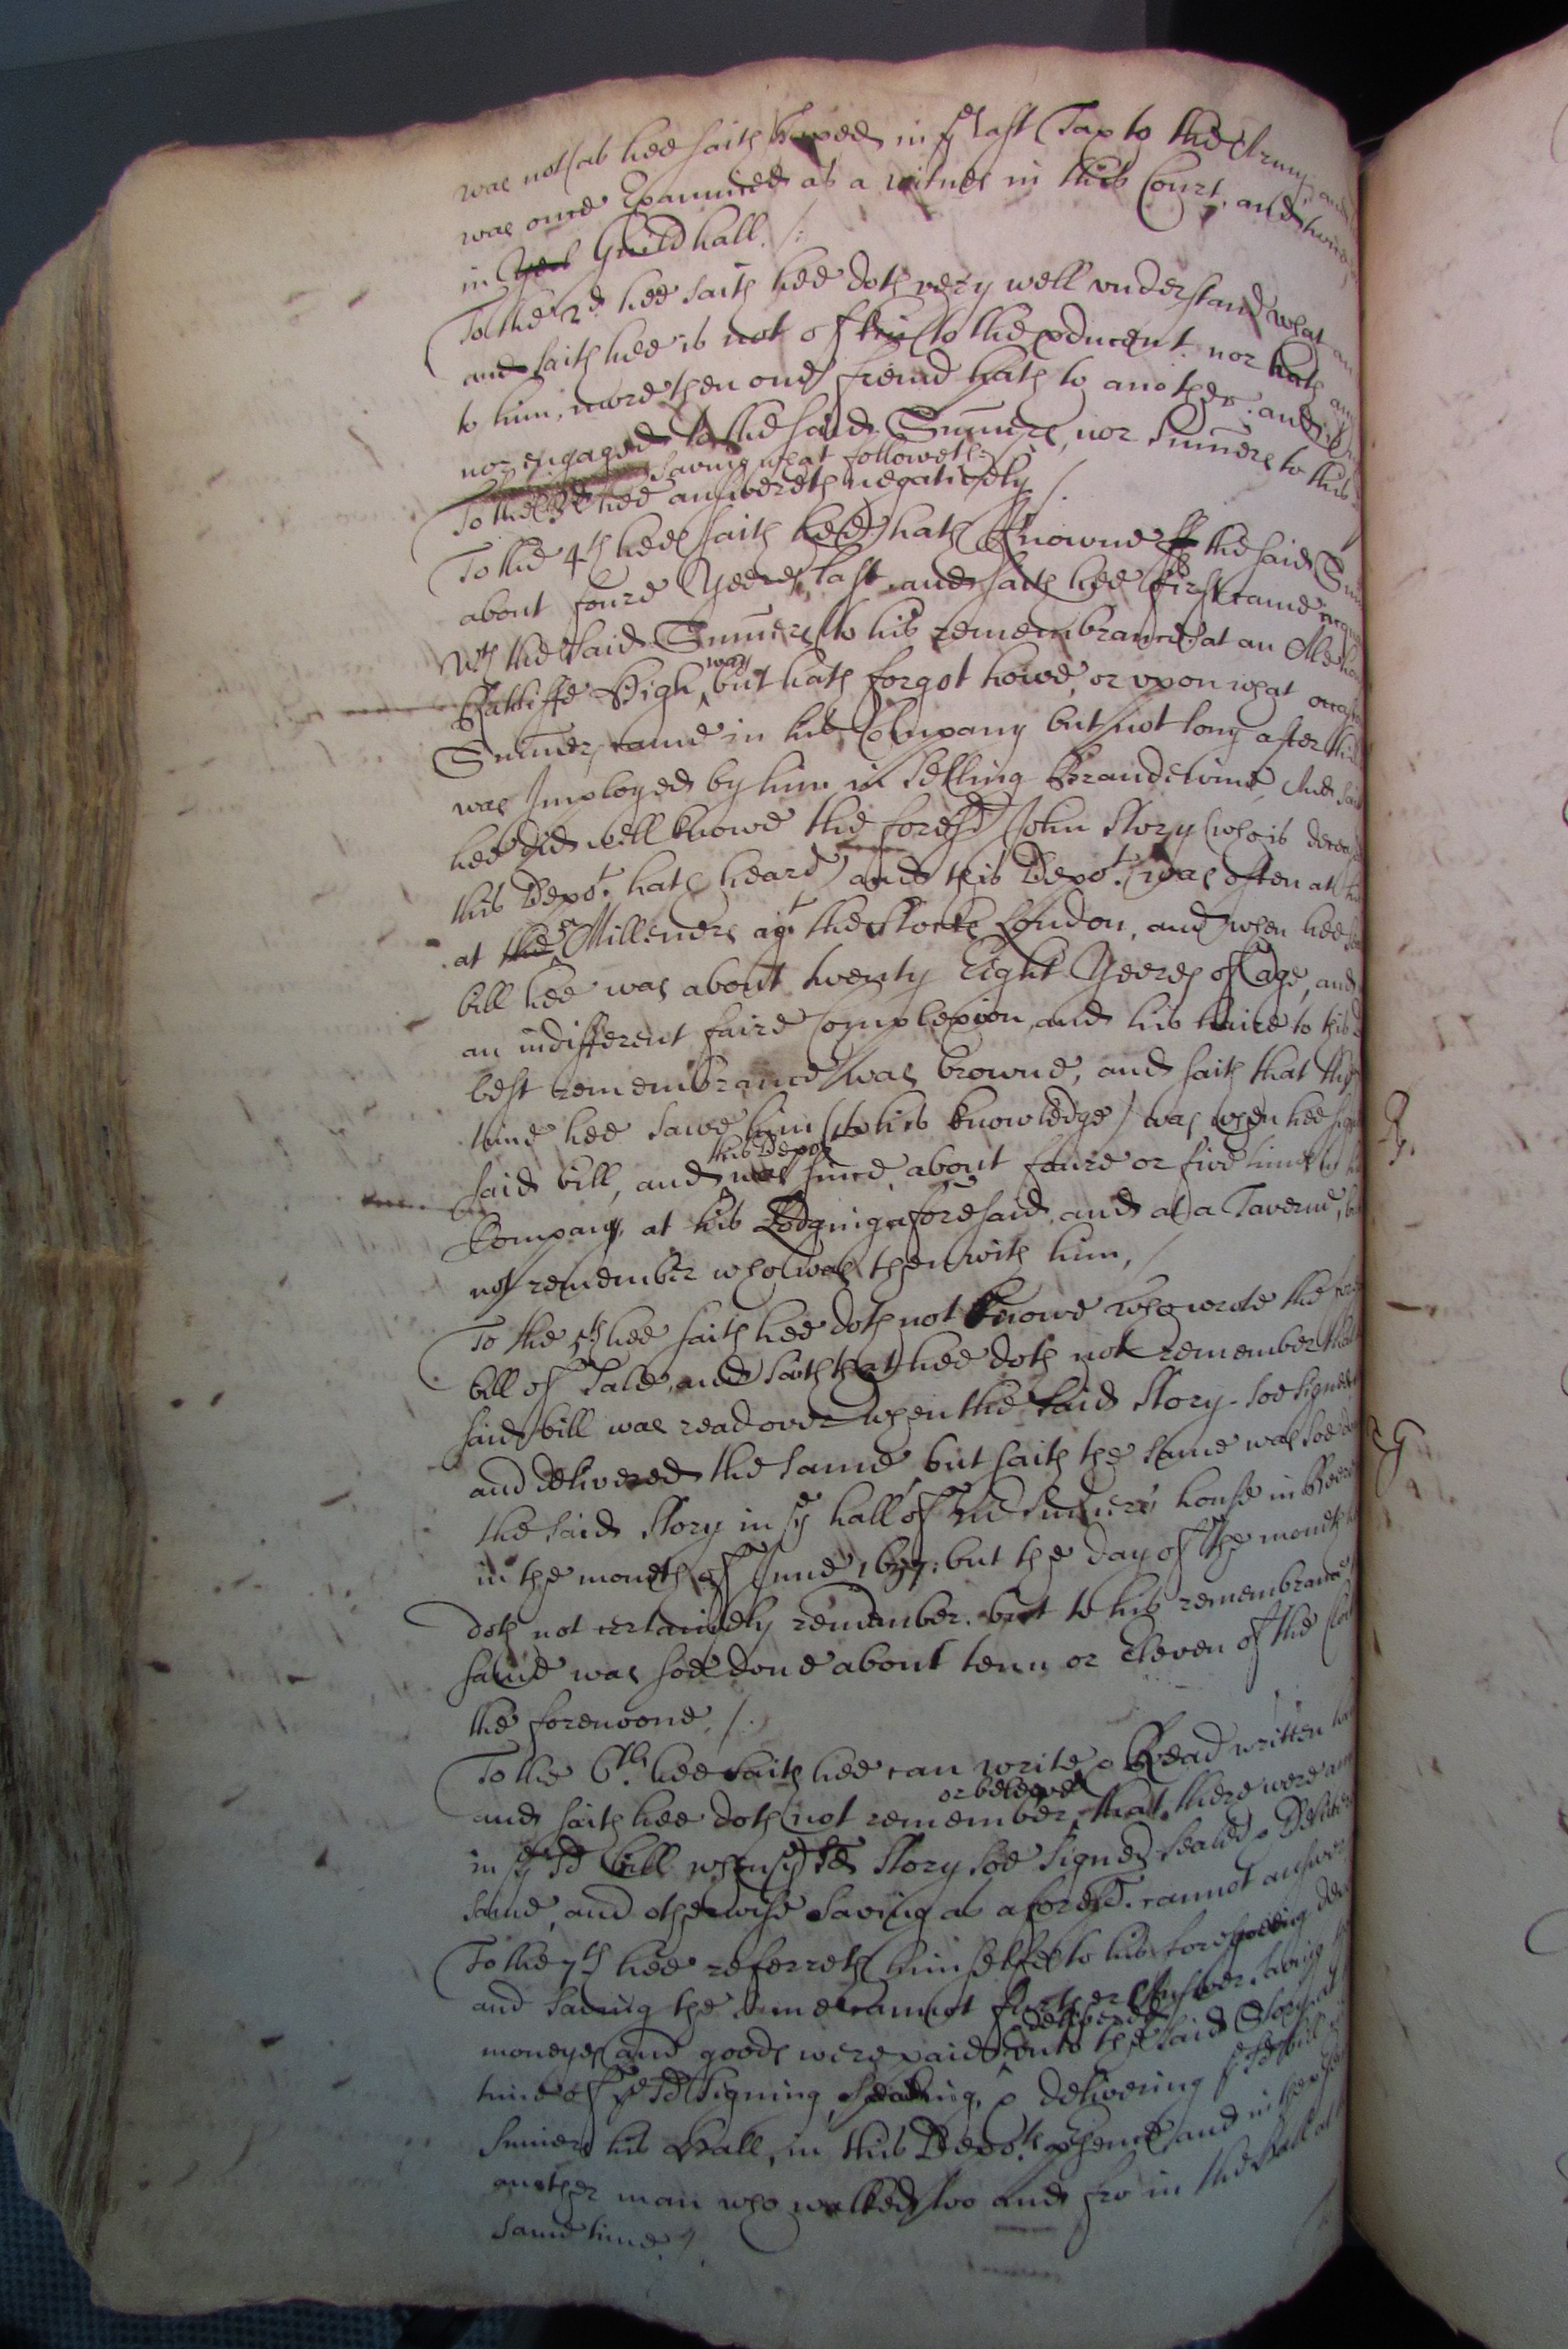 was not (as hee saith) taxed in ye last Tax to the Army, and
was once Examined as a witnes in this Court, and twice
in Guildhall. /:
To the 2d. hee saith hee doth very well understand what an
and saith hee is not of kin to the producent. nor hath any
to him, more then one freind hath to another. and is
nor engaged to the said Sumers, nor Sumers to this
saving what followeth
To the 3d hee answereth negatively /.
To the 4th hee saith hee hath Knowne the said Sum
about foure Yeeres last, and saith hee first came acqua
wth the said Sumers (to his remembrance) at an Alehou
way
Ratliffe High but hath forgot howe, or upon what occasi
Sumers came in his Company but not long after this
was Imployed by him in Selling Brandewine, And sai
hee did well knowe the foresd John Story (who is deceased
this Depot. hath heard) and this Depot. was often at his
at the a Milleners agt the Stocks London, and when hee
bill hee was about twenty Eight Yeeres of age, and
an indifferent faire Complexion, and his haire to this
best remembrance was browne, and saith that the
time hee sawe him (to his knowledge) was when hee sign
this Depot
said bill, and was since about foure or five times in his
Company, at his Lodging aforesaid, and at a Taverne, but
not remember who was then with him, /
To the 5th hee saith hee doth not Knowe who wrote the fore
bill of Sale, and saith that hee doth not remember that
said bill was read over when the said Story soe signed
and delivered the same but saith the same was soe
the said Story in ye hall of the Sumers house in
in the moneth of June 1657: but the day of the moneth
doth not certainely remember. but to his remembrance
same was soe done about tenn or Eleven of the Clock
the forenoone, /.
To the 6th. hee saith hee can write & Read written
or beleeve
and saith hee doth not remember that there were any
in ye sd bill when ye sd Story soe signed sealed & Deliver
same, and otherwise saving as aforesd. cannot answer
To the 7th hee referreth himselfe to his foregoeing
and saving the same cannot further Answer. saving
delivered
moneyes and goods were paid unto the said Story at
time of ye sd signing, sealing, & delivering ye sd bill
Sumers his Hall, in this Depots. presence and in the
another man who walked too and fro in the Hall at
same time. /.